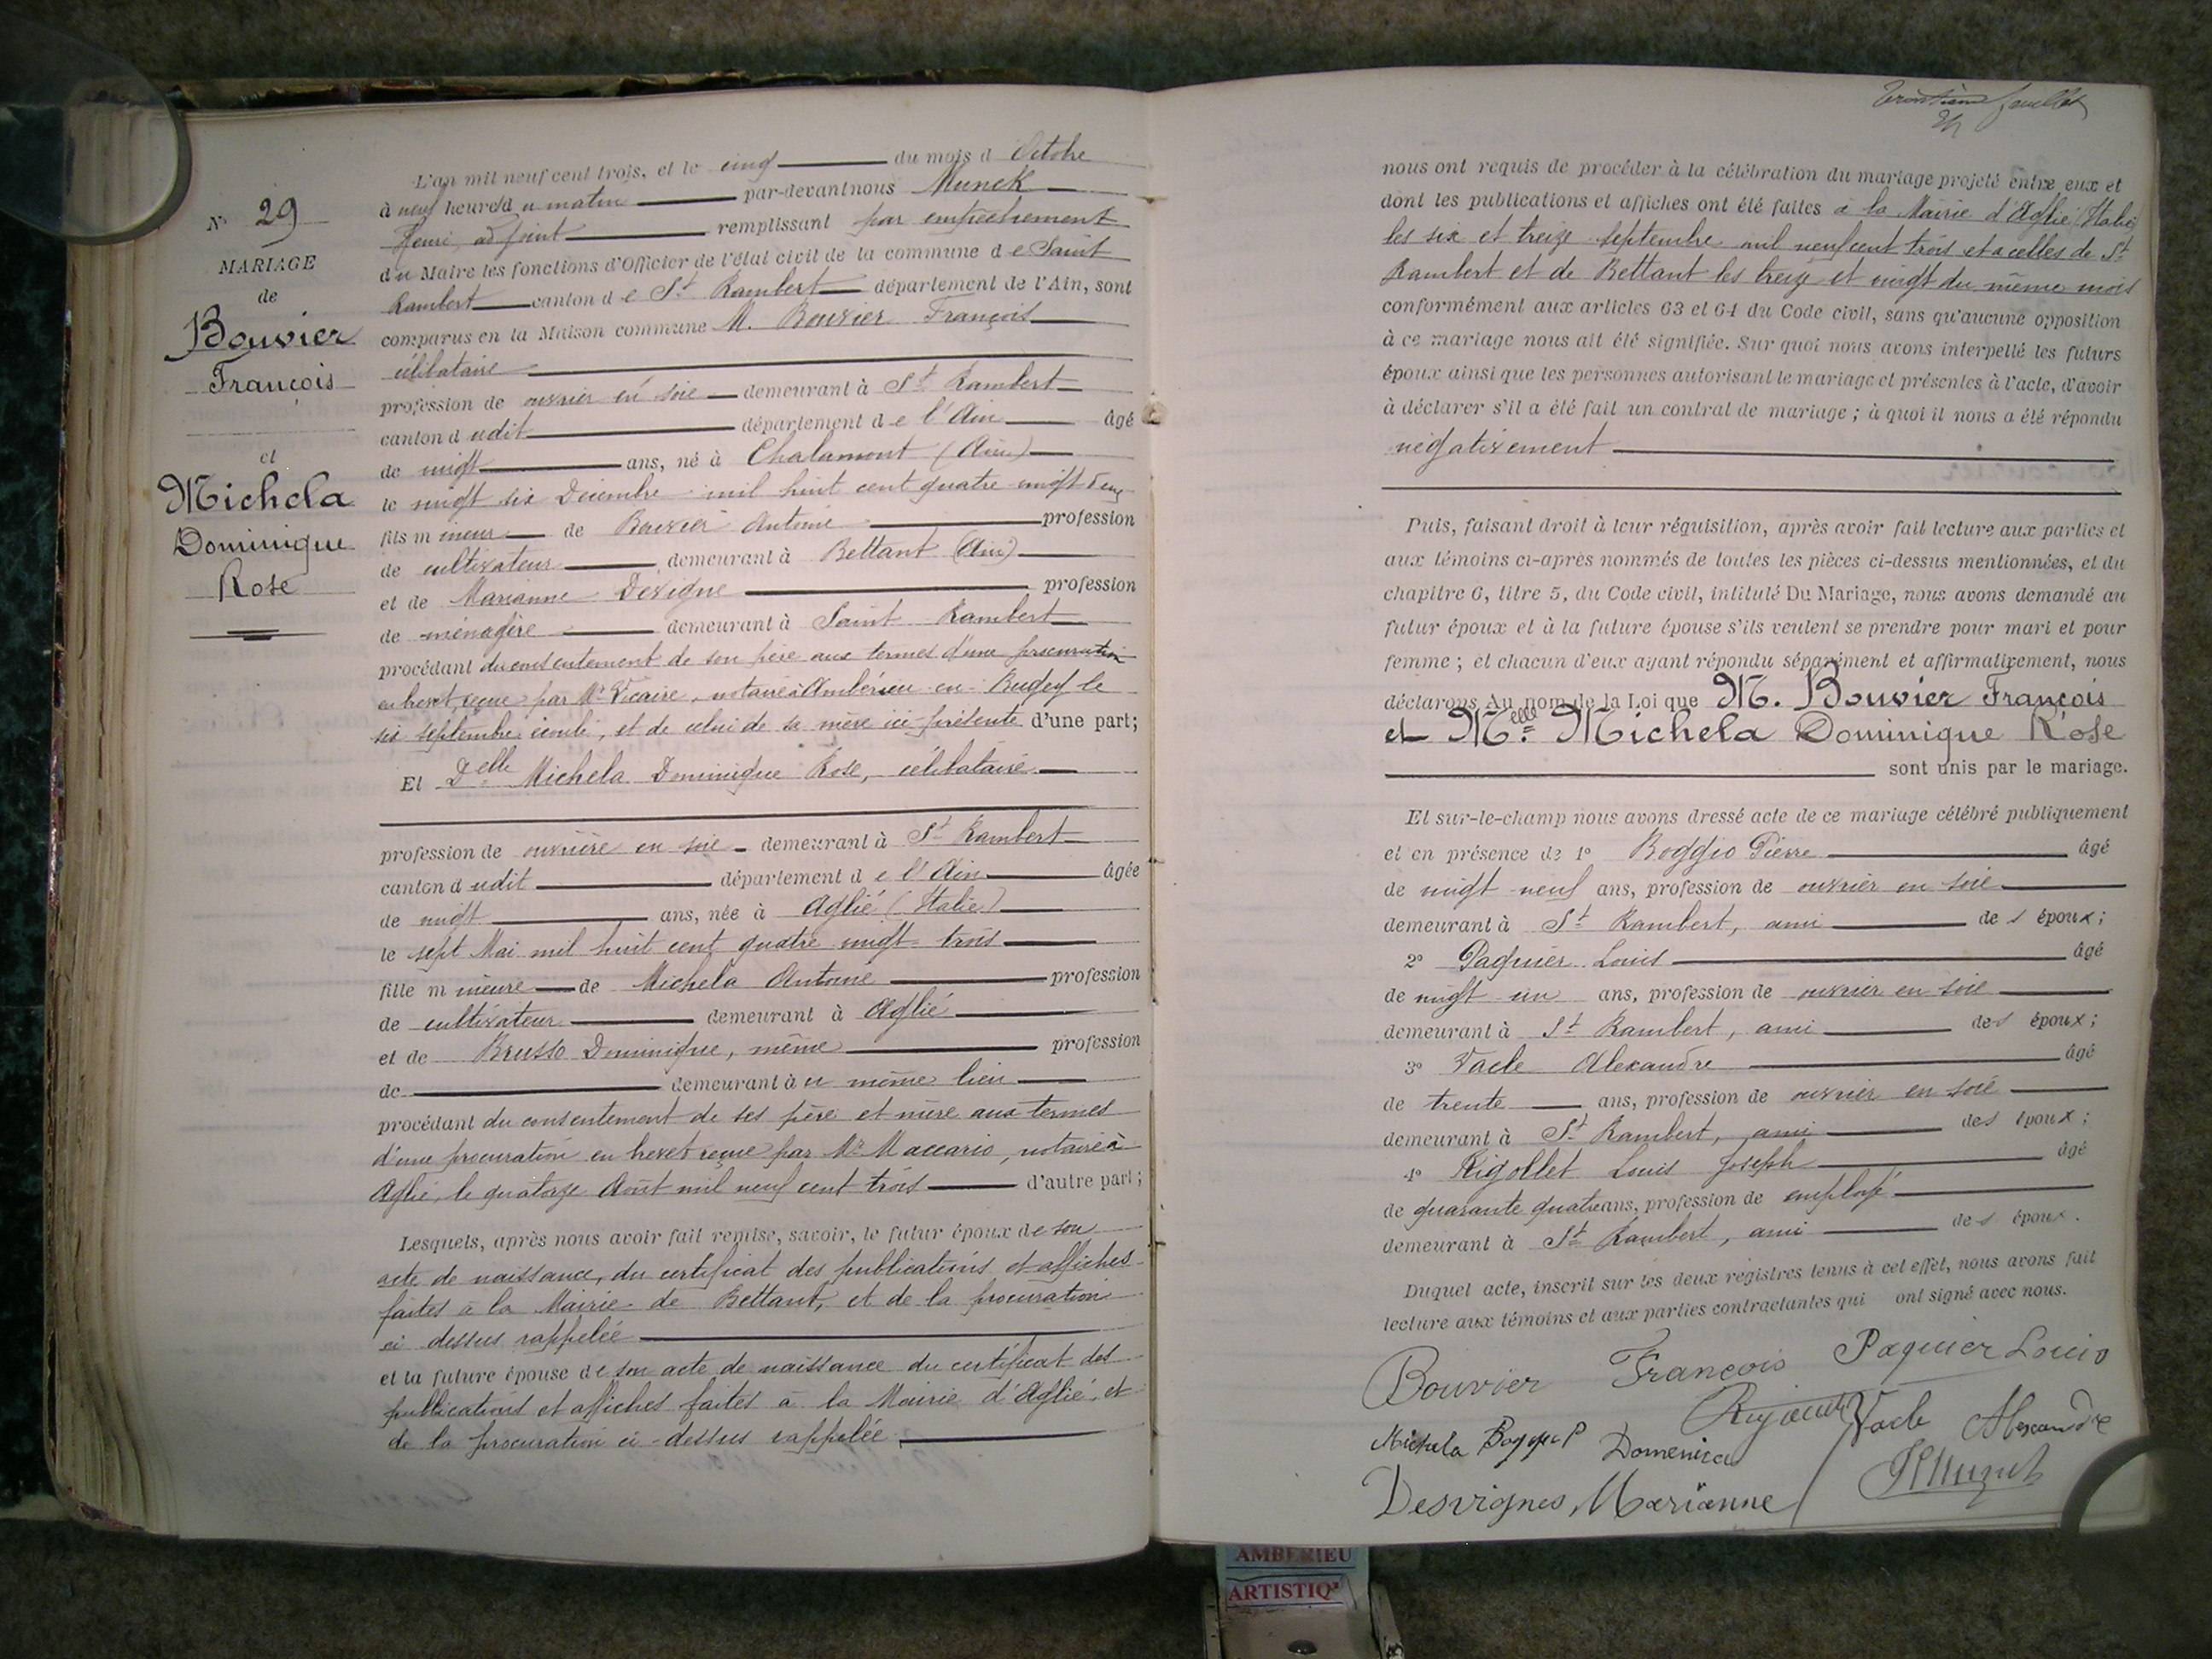 N° 29
MARIAGE
de
Bouvier
François
et
Michela
Dominique
Rose
L'an mil neuf cent trois, et le cinq du mois d'Octobre
à neuf heures du matin par-devant nous Munck
Henri, adjoint remplissant par empêchement
du Maire les fonctions d'Officier de l'état civil de la commune de Saint
Rambert canton de St Rambert département de l'Ain, sont
comparus en la Maison commune M. Bouvier François
célibataire
profession de ouvrier en soie demeurant à St Rambert
canton dudit département de l'Ain âgé
de vingt ans, né à Chalamont (Ain)
le vingt six Décembre mil huit cent quatre-vingt-deux
fils mineur de Bouvier Antoine profession
de cultivateur demeurant à Bettant (Ain)
et de Marianne Devigne profession
de ménagère demeurant à Saint Rambert
procédant du consentement de son père aux termes d'une procuration
en brevet reçue par Mr Vicaire, notaire à Ambérieu-en-Bugey le
six septembre écoulé, et de celui de sa mère ici présente d'une part;
Et Delle Michela Dominique Rose, célibataire
profession de ouvrière en soie demeurant à St Rambert
canton dudit département de l'Ain âgée
de vingt ans, née à Aglié (Italie)
le sept Mai mil huit cent quatre vingt trois
fille mineure de Michela Antoine profession
de cultivateur demeurant à Aglié
et de Brusso Dominique, même profession
de demeurant à u même lieu
procédant du consentement de ses père et mère aux termes
d'une procuration en brevet reçue par Mr Maccario, notaire à
Aglié, le quatorze Août mil neuf cent trois d'autre part;
Lesquels, après nous avoir fait remise, savoir, le futur époux de son
acte de naissance, du certificat des publications et affiches
faites à la Mairie de Bettant, et de la procuration
ci dessus rappelée
et la future épouse de son acte de naissance du certificat des
publications et affiches faites à la Mairie d'Aglié, et
de la procuration ci-dessus rappelée.
feuillet
nous ont requis de procéder à la célébration du mariage projeté entre eux et
dont les publications et affiches ont été faites à la Mairie d'Aglié (Italie)
les six et treize septembre mil neuf cent trois et à celles de St
Rambert et de Bettant les treize et vingt du même mois
conformément aux articles 63 et 64 du Code civil, sans qu'aucune opposition
à ce mariage nous ait été signifiée. Sur quoi nous avons interpellé les futurs
époux ainsi que les personnes autorisant le mariage et présentes à l'acte, d'avoir
à déclarer s'il a été fait un contrat de mariage ; à quoi il nous a été répondu
négativement
Puis, faisant droit à leur réquisition, après avoir fait lecture aux parties et
aux témoins ci-après nommés de toutes les pièces ci-dessus mentionnées, et du
chapitre 6, titre 5, du Code civil, intitulé Du Mariage, nous avons demandé au
futur époux et à la future épouse s'ils veulent se prendre pour mari et pour
femme ; et chacun d'eux ayant répondu séparément et affirmativement, nous
déclarons Au nom de la Loi que M. Bouvier François
et Melle Michela Dominique Rose
sont unis par le mariage.
Et sur-le-champ nous avons dressé acte de ce mariage célébré publiquement
et en présence de 1° Boggio Pierre âgé
de vingt neuf ans, profession de ouvrier en soie
demeurant à St Rambert, ami des époux;
2° Paquier Louis âgé
de vingt un ans, profession de ouvrier en soie
demeurant à St Rambert, ami des époux;
3° Vacle Alexandre âgé
de trente ans, profession de ouvrier en soie
demeurant à St Rambert, ami des époux;
4° Rigollet Louis Joseph âgé
de quarante quatre ans, profession de employé
demeurant à St Rambert, ami des époux.
Duquel acte, inscrit sur les deux registres tenus à cet effet, nous avons fait
lecture aux témoins et aux parties contractantes qui ont signé avec nous.
Bouvier François Paquier Louis
Vacle Alexandre
Michela Domenica
Desvignes, Marianne
AMBERIEU
ARTISTIQ